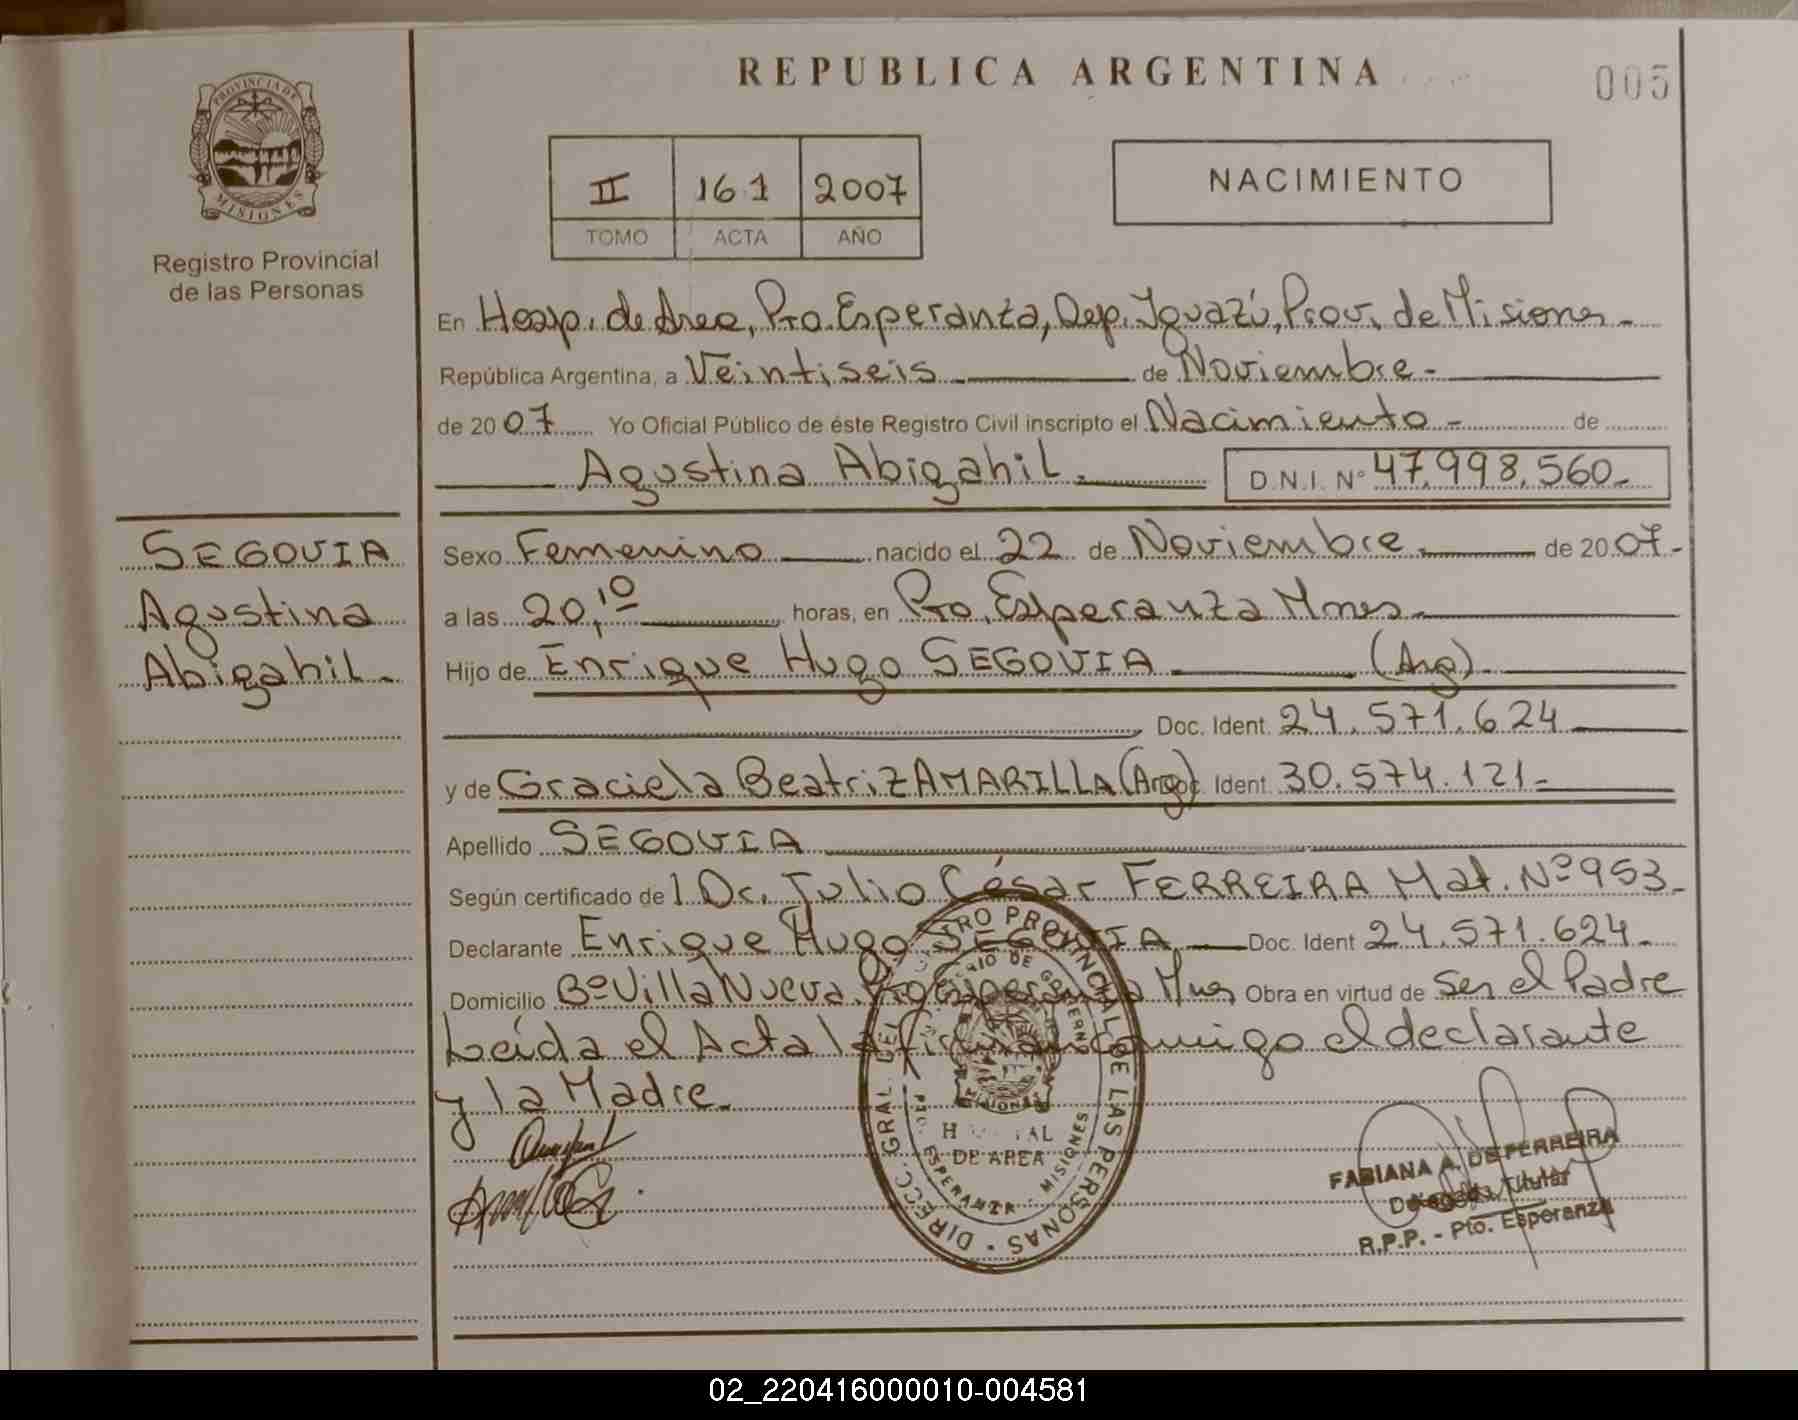 REPUBLICA ARGENTINA
005
PROVINCIA DE
MISIONES
Registro Provincial
de las Personas
II 161 2007
TOMO ACTA AÑO
NACIMIENTO
En Hosp. de Area, Pto. Esperanza, Dep. Iguazú, Prov. de Misiones-
República Argentina, a Veintiseis de Noviembre-
de 2007 Yo Oficial Público de éste Registro Civil inscripto el Nacimiento- de
Agustina Abigahil. D.N.I. Nº 47.998.560-
SEGOVIA
Agustina
Abigahil-
Sexo Femenino nacido el 22 de Noviembre. de 2007-
a las 20,10 horas, en Pto. Esperanza Mnes-
Hijo de Enrique Hugo SEGOVIA (Arg)
Doc. Ident. 24.571.624
y de Graciela Beatriz AMARILLA (Arg) Doc. Ident. 30.574.121-
Apellido SEGOVIA
Según certificado de l Dr. Julio César FERREIRA Mat. Nº 953-
Declarante Enrique Hugo SEGOVIA Doc. Ident 24.571.624-
Domicilio Bº Villa Nueva Pto Esperanza Mnes Obra en virtud de Ser el Padre
Leída el Acta la firman conmigo el declarante
y la Madre-
DIRECC. GRAL. DEL REGISTRO PROVINCIAL DE LAS PERSONAS
MINISTERIO DE GOBIERNO
MISIONES
HOSPITAL
DE AREA
PTO. ESPERANZA - MISIONES
FABIANA A. DE FERREIRA
Delegada Titular
R.P.P. - Pto. Esperanza
02_220416000010-004581